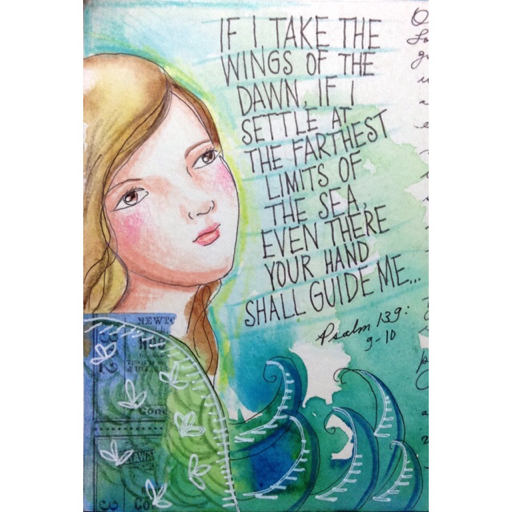 IF I TAKE THE
WINGS OF THE
DAWN, IF I
SETTLE AT
THE FARTHEST
LIMITS OF
THE SEA,
EVEN THERE
YOUR HAND
SHALL GUIDE ME...
Psalm 139:
9-10